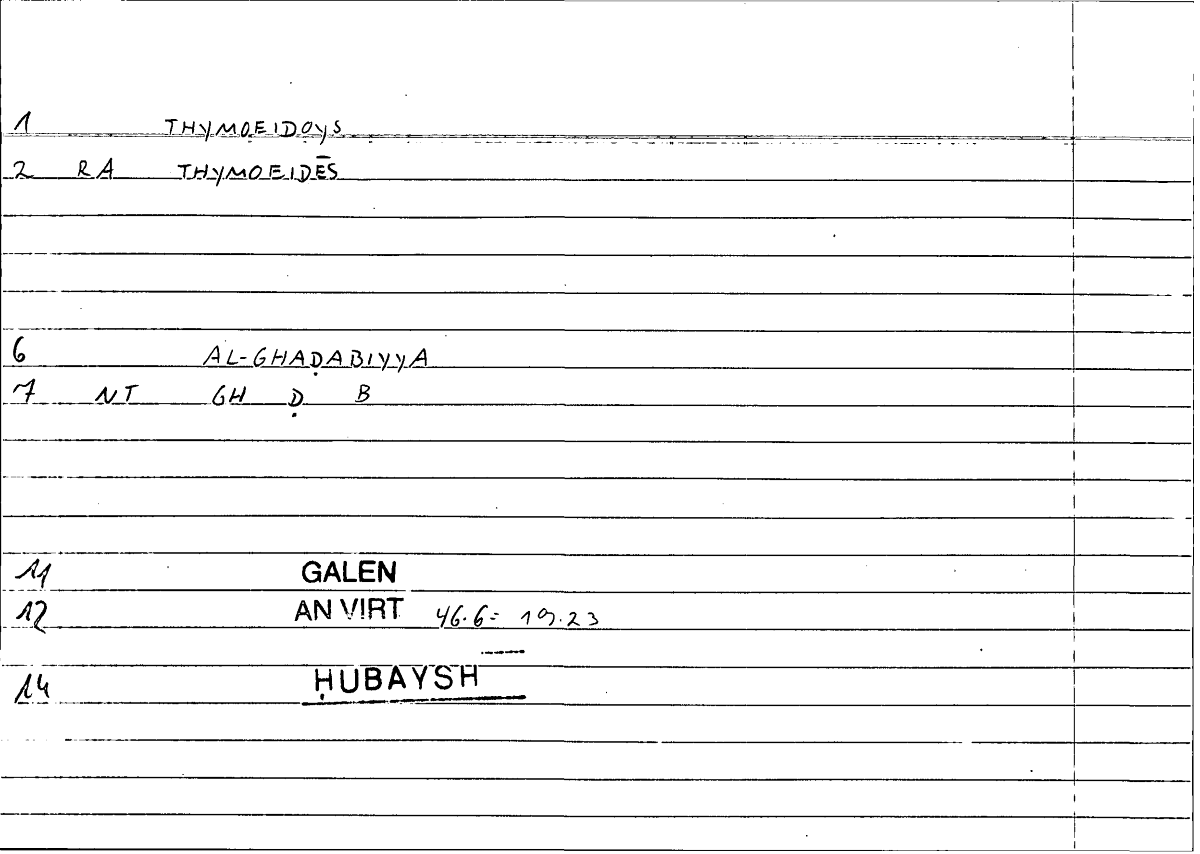 1 THYMOEIDOYS
2 RA THYMOEIDĒS
6 AL-GHAḌABIYYA
7 NT GH Ḍ B
11 GALEN
12 AN VIRT 46.6 = 19.23
14 ḤUBAYSH